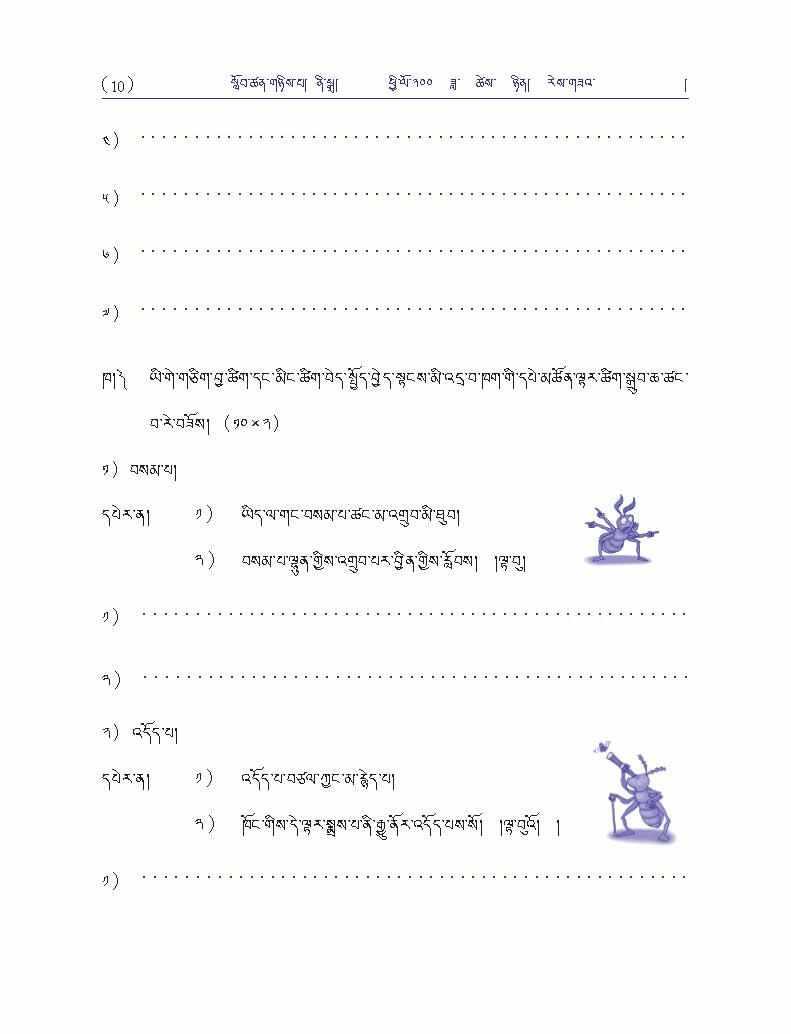 (10) སློབ་ཚན་གཉིས་པ། ནི་སྒྲ། ཕྱི་ལོ་༢༠༠ ཟླ་ ཚེས་ ཉིན། རེས་གཟའ་ །
༤)
༥)
༦)
༧)
ཁ། ༽ ཡི་གེ་གཅིག་བྱ་ཚིག་དང་མིང་ཚིག་བེད་སྤྱོད་བྱེད་སྟངས་མི་འདྲ་བ་ཁག་གི་དཔེ་མཚོན་ལྟར་ཚིག་སྒྲུབ་ཆ་ཚང་
བ་རེ་བཟོས། (༡༠×༢)
༡) བསམ་པ།
དཔེར་ན། ༡) ཡིད་ལ་གང་བསམ་པ་ཚང་མ་འགྲུབ་མི་ཐུབ།
༢) བསམ་པ་ལྷུན་གྱིས་འགྲུབ་པར་བྱིན་གྱིས་རློབས། །ལྟ་བུ།
༡)
༢)
༢) འདོད་པ།
དཔེར་ན། ༡) འདོད་པ་བཙལ་ཀྱང་མ་རྙེད་པ།
༢) ཁོང་གིས་དེ་ལྟར་སྨྲས་པ་ནི་རྒྱུ་ནོར་འདོད་པས་སོ། །ལྟ་བུའོ། །
༡)